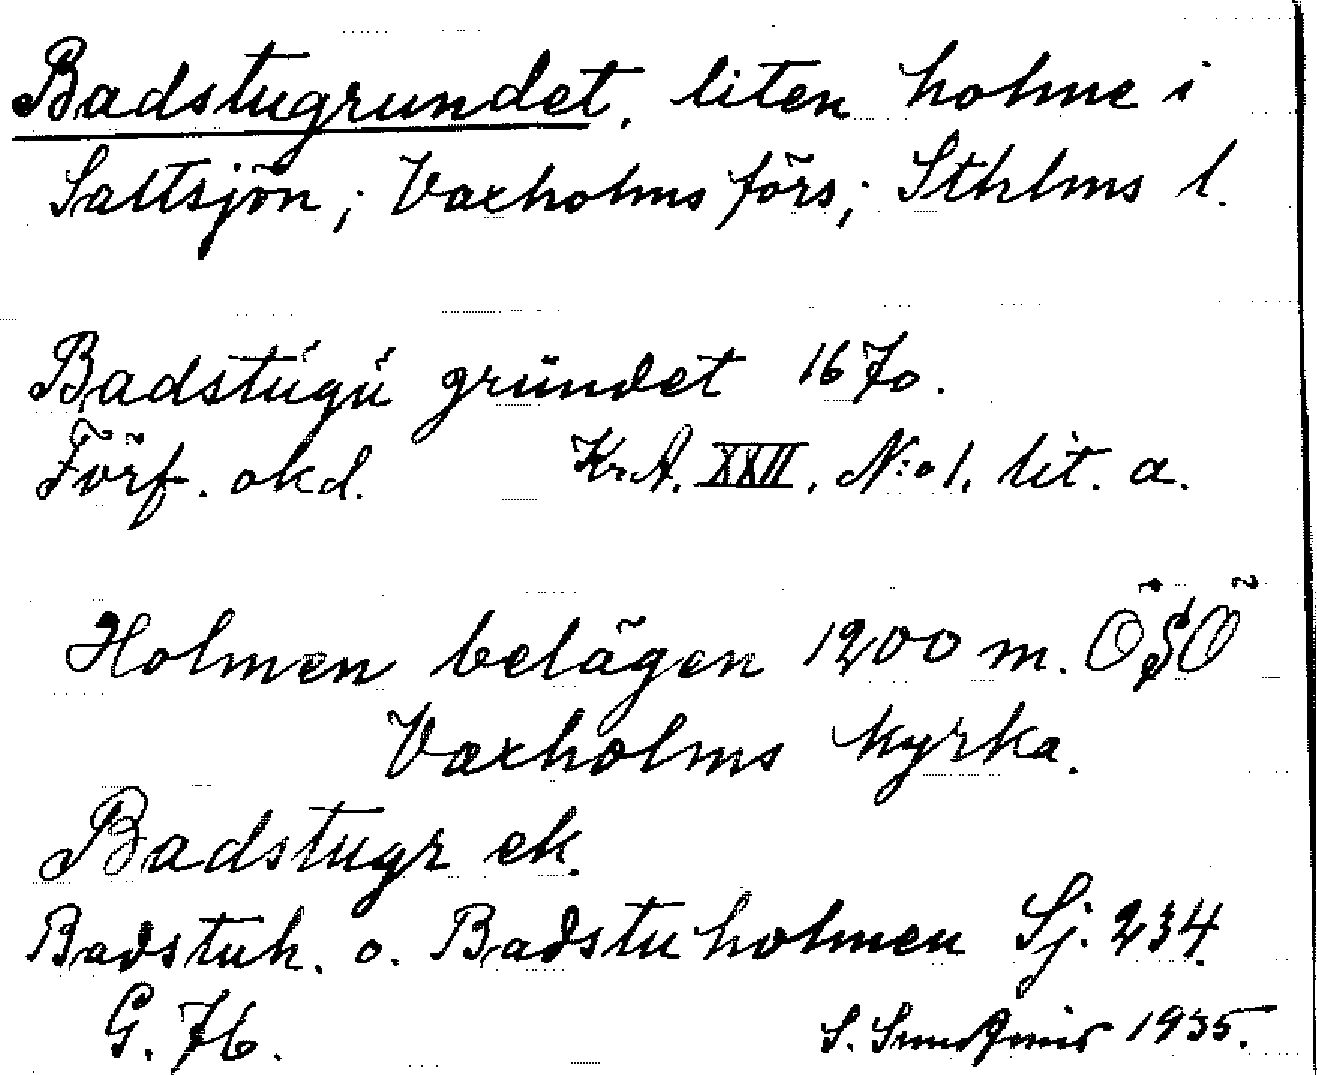 Badstugrundet, liten holme i
Saltsjön; Vaxholms förs; Sthlms l.
Badstúgú gründet 1670.
Förf. okd. Kr.A. XXII. N:o 1. lit. a.
Holmen belägen 1200 m. ÖSÖ
Vaxholms kyrka.
Badstugr ek.
Badstuh. o. Badstuholmen Sj. 234.
G. 76. S. 1935.